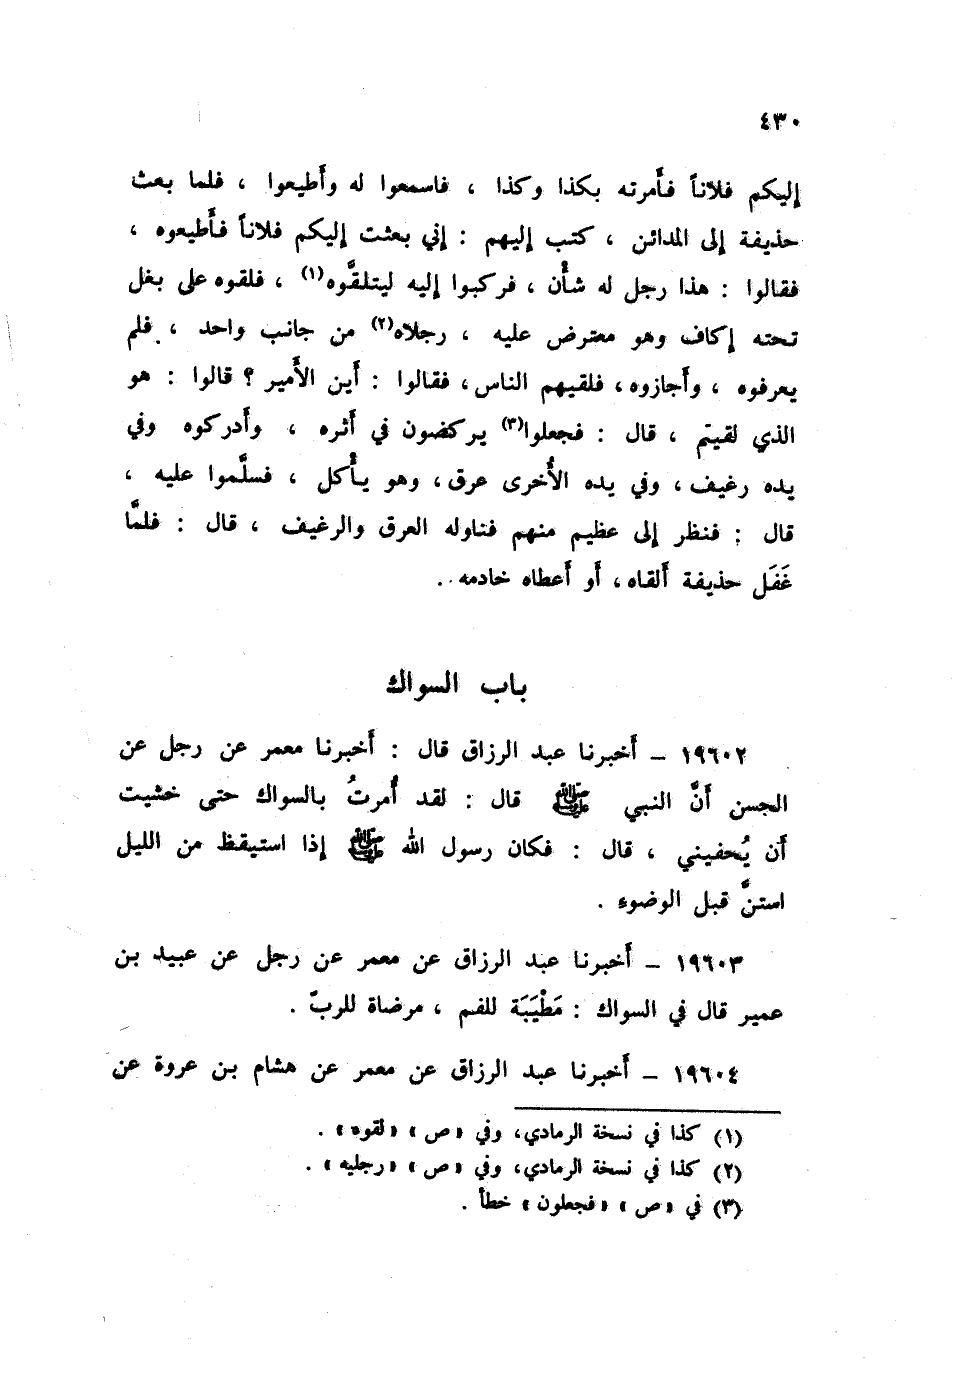 ٤٣٠
إليكم فلاناً فأمرته بكذا وكذا ، فاسمعوا له وأطيعوا ، فلما بعث
حذيفة إلى المدائن ، كتب إليهم : إني بعثت إليكم فلاناً فأطيعوه ،
فقالوا : هذا رجل له شأن ، فركبوا إليه ليتلقَّوه(١) ، فلقوه على بغل
تحته إكاف وهو معترض عليه ، رجلاه(٢) من جانب واحد ، فلم
يعرفوه ، وأجازوه ، فلقيهم الناس ، فقالوا : أين الأمير ؟ قالوا : هو
الذي لقيتم ، قال : فجعلوا(٣) يركضون في أثره ، وأدركوه وفي
يده رغيف ، وفي يده الأُخرى عرق ، وهو يأكل ، فسلَّموا عليه ،
قال : فنظر إلى عظيم منهم فناوله العرق والرغيف ، قال : فلمَّا
غَفَل حذيفة ألقاه ، أو أعطاه خادمه .
باب السواك
١٩٦٠٢ – أخبرنا عبد الرزاق قال : أخبرنا معمر عن رجل عن
الحسن أنَّ النبي ﷺ قال : لقد أُمرتُ بالسواك حتى خشيت
أن يُحفيني ، قال : فكان رسول الله ﷺ إذا استيقظ من الليل
استنَّ قبل الوضوء .
١٩٦٠٣ – أخبرنا عبد الرزاق عن معمر عن رجل عن عبيد بن
عمير قال في السواك : مَطْيَبَة للفم ، مرضاة للربّ .
١٩٦٠٤ – أخبرنا عبد الرزاق عن معمر عن هشام بن عروة عن
(١) كذا في نسخة الرمادي، وفي «ص» «لقوه» .
(٢) كذا في نسخة الرمادي، وفي «ص» «رجليه» .
(٣) في «ص» «فجعلون» خطأ .